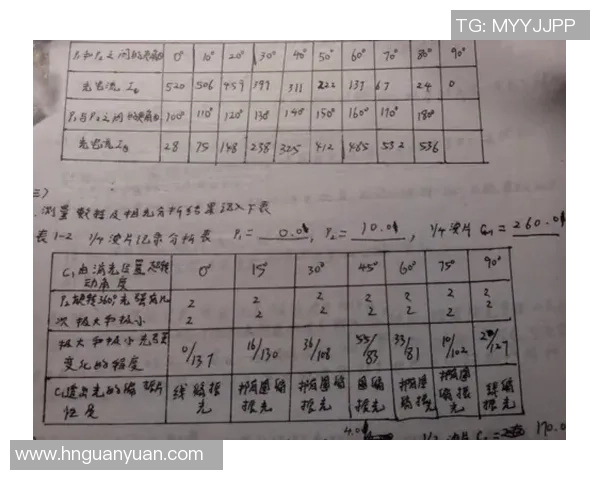 TG: MYYJJPP
P₁和P₂之间的夹角θ 0° 10° 20° 30° 40° 50° 60° 70° 80° 90°
光电流 Iθ 520 506 459 399 311 222 137 67 24 0
P₁与P₂之间的夹角θ 100° 110° 120° 130° 140° 150° 160° 170° 180°
光电流 Iθ 28 75 148 238 325 412 485 532 536
三)
测量数据及相光分析结果记入下表
表1-2 1/4波片记录分析表 P₁= 0.0°, P₂= 90.0°, 1/4波片 Cm= 260.0°
C₁由消光位置起转动角度 0° 15° 30° 45° 60° 75° 90°
P₂旋转360°光强有几 2 2 2 2 2 2 2
次极大和极小 2 2 2 2 2 2 2
极大和极小光电流 0/137 16/130 36/108 55/83 33/81 10/102 /127
变化的幅度
C₁透出光的偏振 线偏 椭圆偏 椭圆偏 圆偏 椭圆 椭圆偏 线偏
性质 振光 振光 振光 振光 偏振光 振光 振光
4.0°
1/2波片 C₁= 170.0
www.hnguanyuan.com